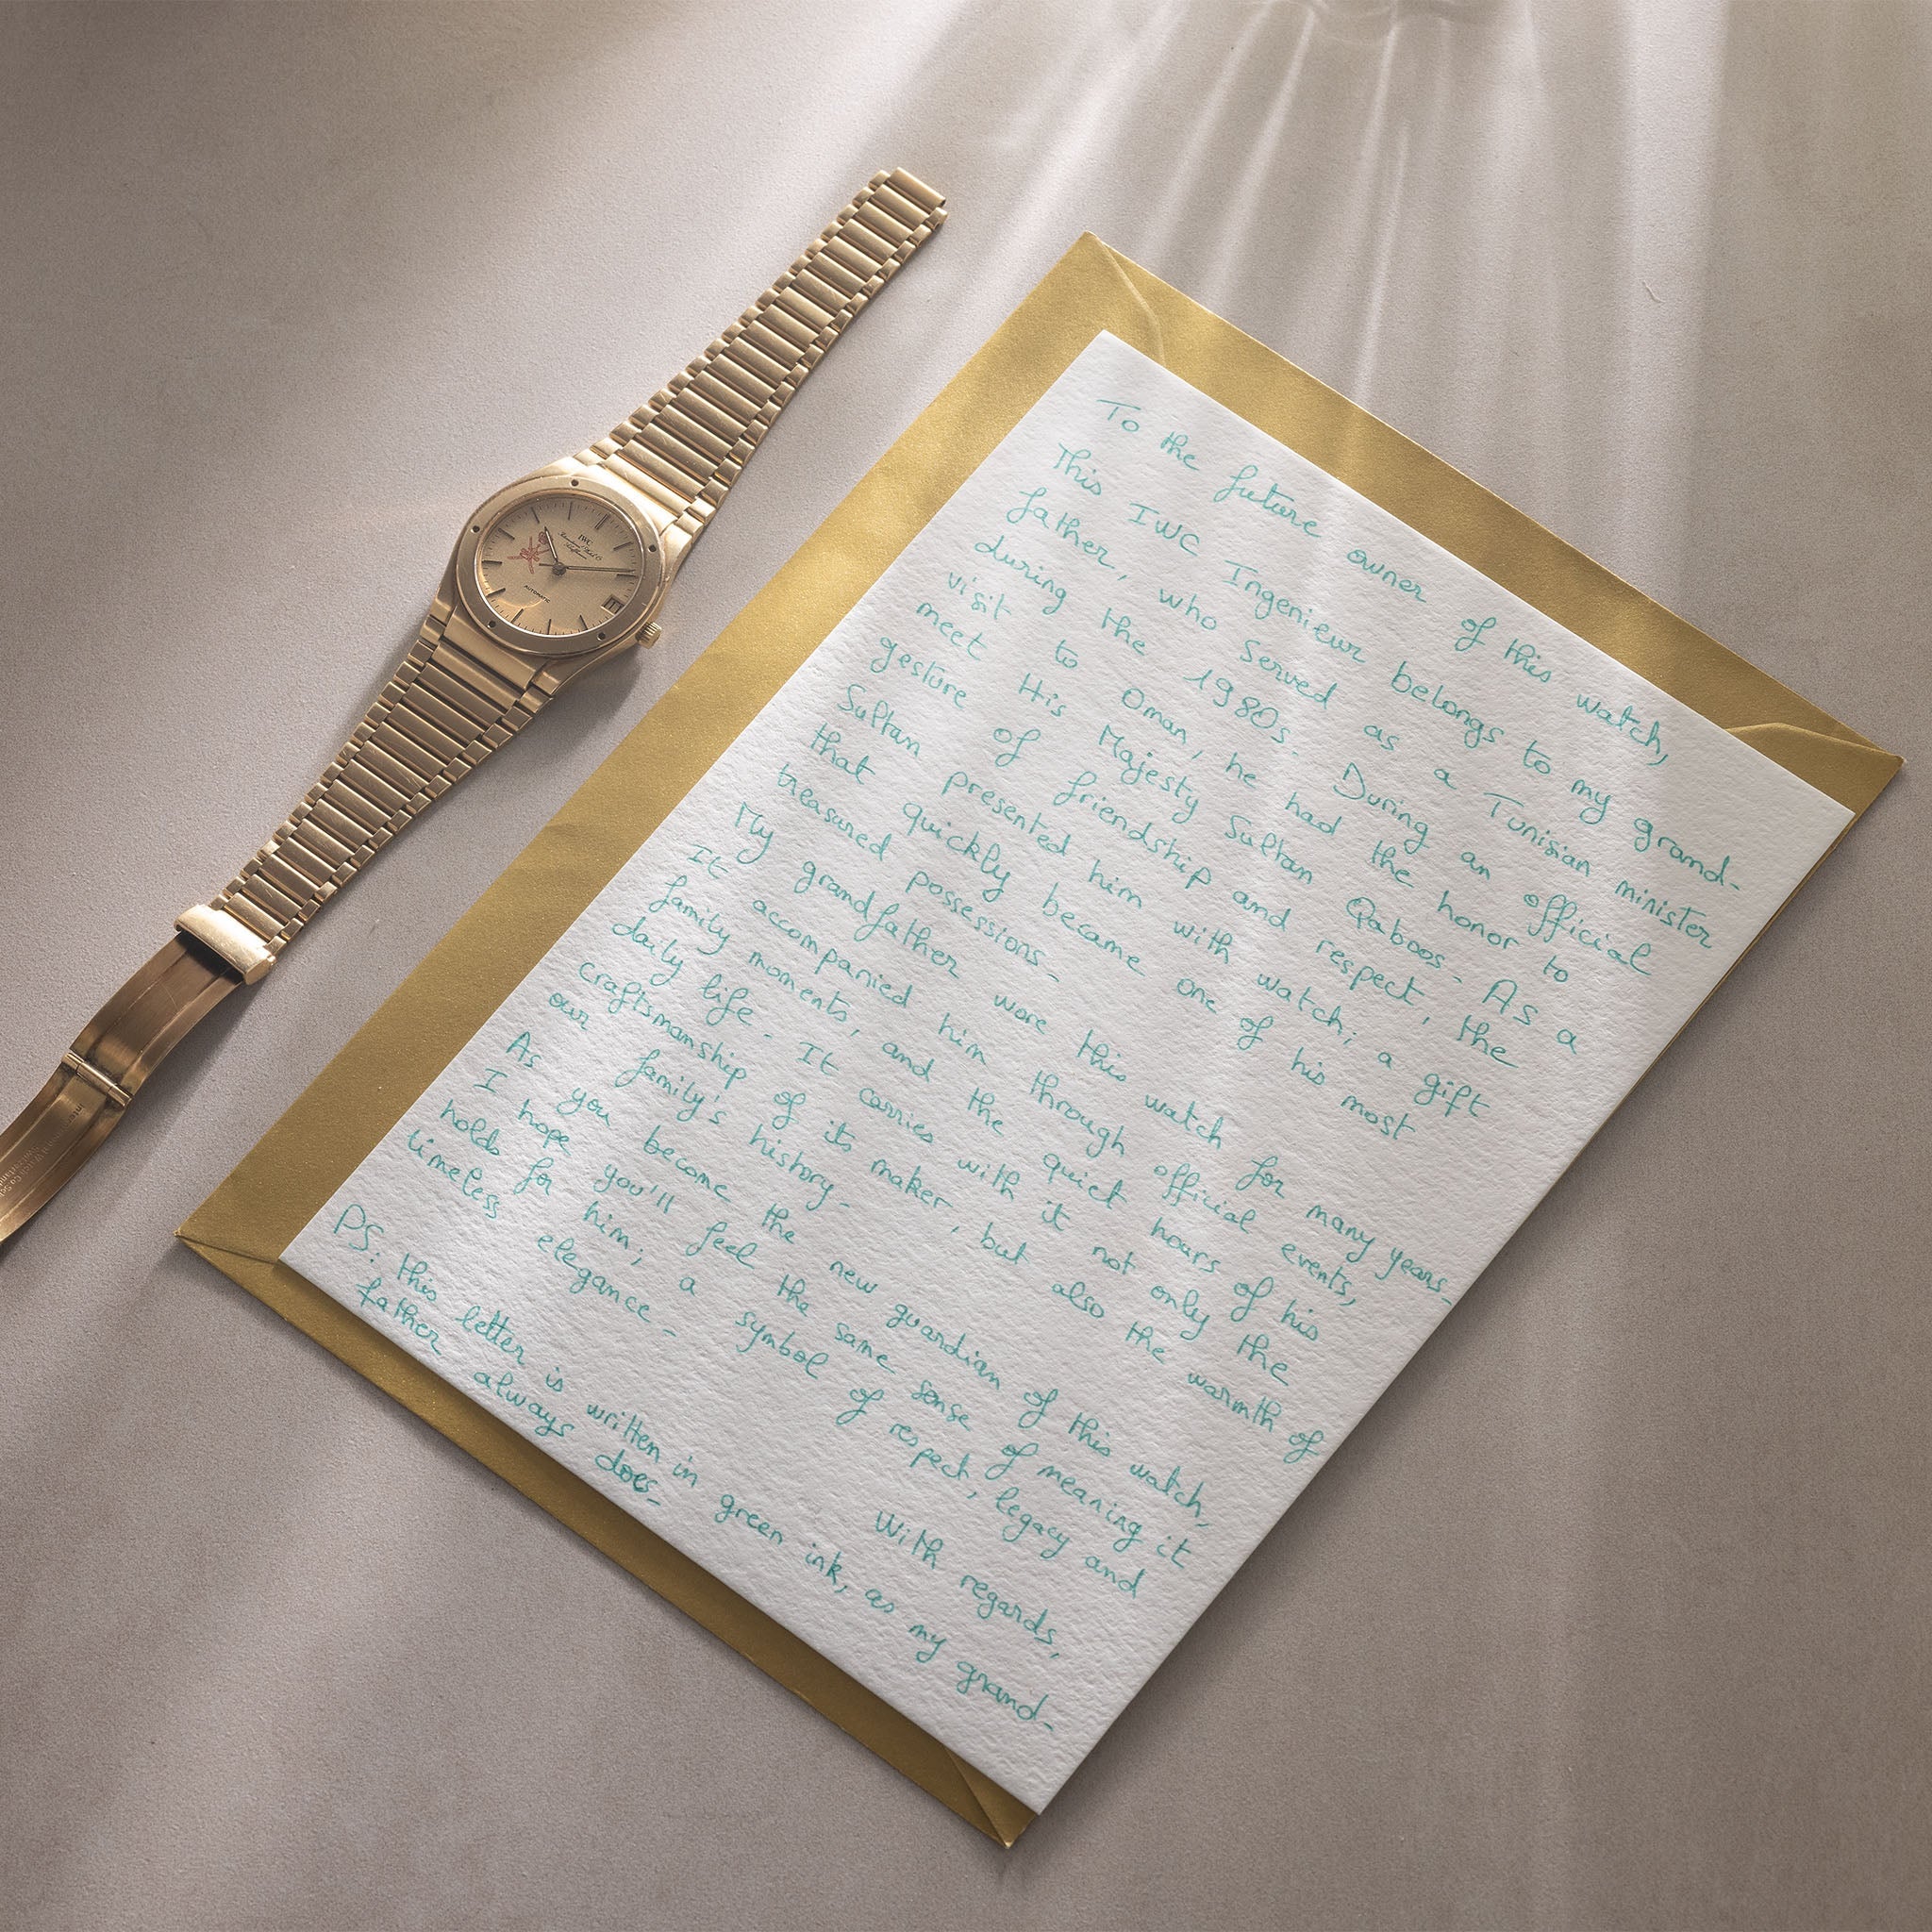 IWC
International Watch Co
Schaffhausen
AUTOMATIC
To the future owner of this watch,
This IWC Ingenieur belongs to my grand-
father, who served as a Tunisian minister
during the 1980s. During an official
visit to Oman, he had the honor to
meet His Majesty Sultan Qaboos. As a
gesture of friendship and respect, the
Sultan presented him with watch; a gift
that quickly became one of his most
treasured possessions.
My grandfather wore this watch for many years.
It accompanied him through official events,
family moments, and the quiet hours of his
daily life. It carries with it not only the
craftsmanship of its maker, but also the warmth of
our family's history.
As you become the new guardian of this watch,
I hope you'll feel the same sense of meaning it
holds for him; a symbol of respect, legacy and
timeless elegance.
With regards,
PS: this letter is written in green ink, as my grand-
father always does.